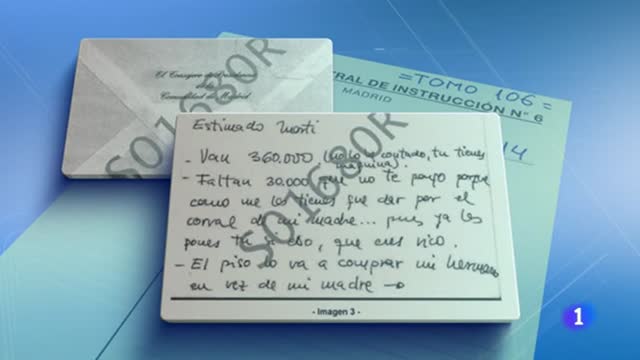 El Consejero de Presidencia
de la
Comunidad de Madrid
SO1680R
=TOMO 106=
TRAL DE INSTRUCCIÓN Nº 6
MADRID
14
Estimado
- Van 360.000, (no lo he contado, tu tienes
máquina).
- Faltan 30.000, que no te pongo porque
como me los tienes que dar por el
corral de mi madre... pues ya los
pones tu a eso, que eres rico.
- El piso lo va a comprar mi hermano
en vez de mi madre →
SO1680R
- Imagen 3 -
1